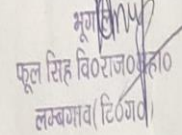 भूगोल
फूल सिंह वि०राज०महा०
लम्बगांव (टि०ग०)